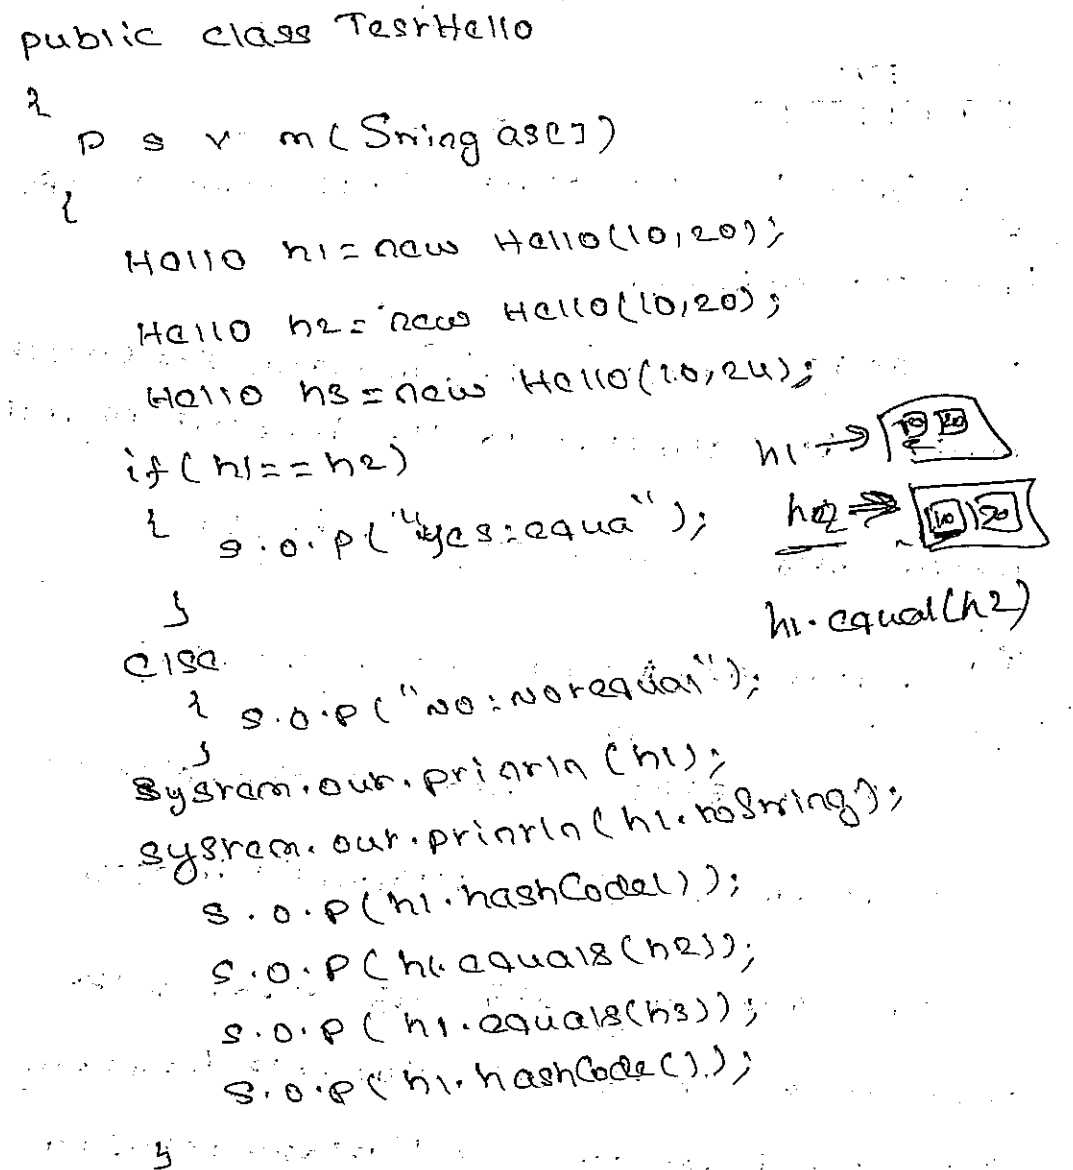 public class TestHello
{
p s v m(String as[])
{
Hello h1 = new Hello(10,20);
Hello h2 = new Hello(10,20);
Hello h3 = new Hello(10,24);
if(h1==h2)
h1 → 10 20
{ s.o.p("yes:equa");
h2 → 10 20
}
h1.equal(h2)
else
{ s.o.p("NO:Notequal");
}
System.out.println(h1);
system.out.println(h1.toString);
s.o.p(h1.hashCode());
s.o.p(h1.equals(h2));
s.o.p(h1.equals(h3));
s.o.p(h1.hashCode());
}